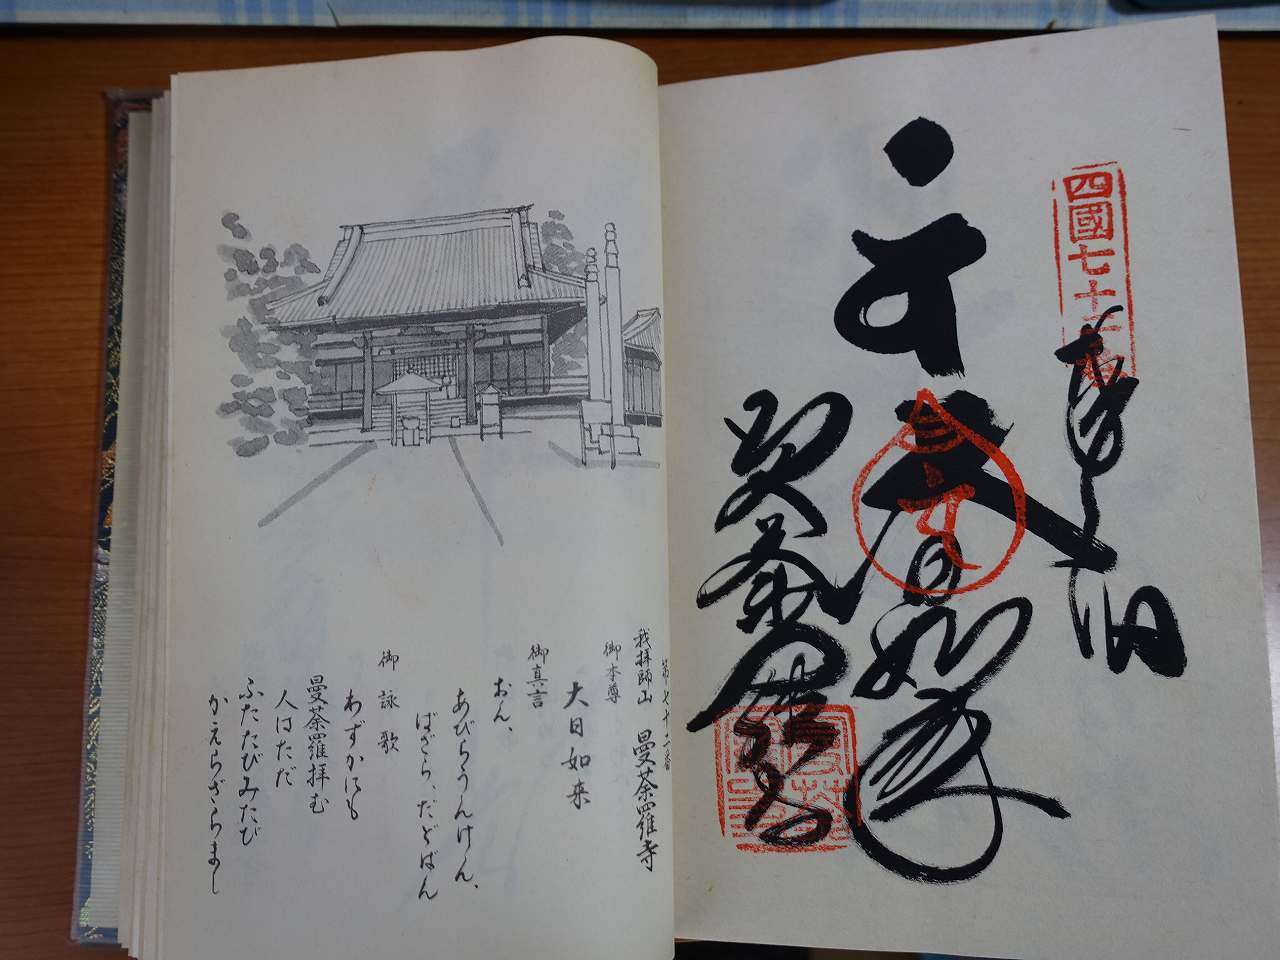 四國七十二番
奉納
大日如来
曼荼羅寺
第七十二番
我拝師山 曼荼羅寺
御本尊
大日如来
御真言
おん、
あびらうんけん、
ばざら、だどばん
御詠歌
わずかにも
曼荼羅拝む
人はただ
ふたたびみたび
かえらざらまし